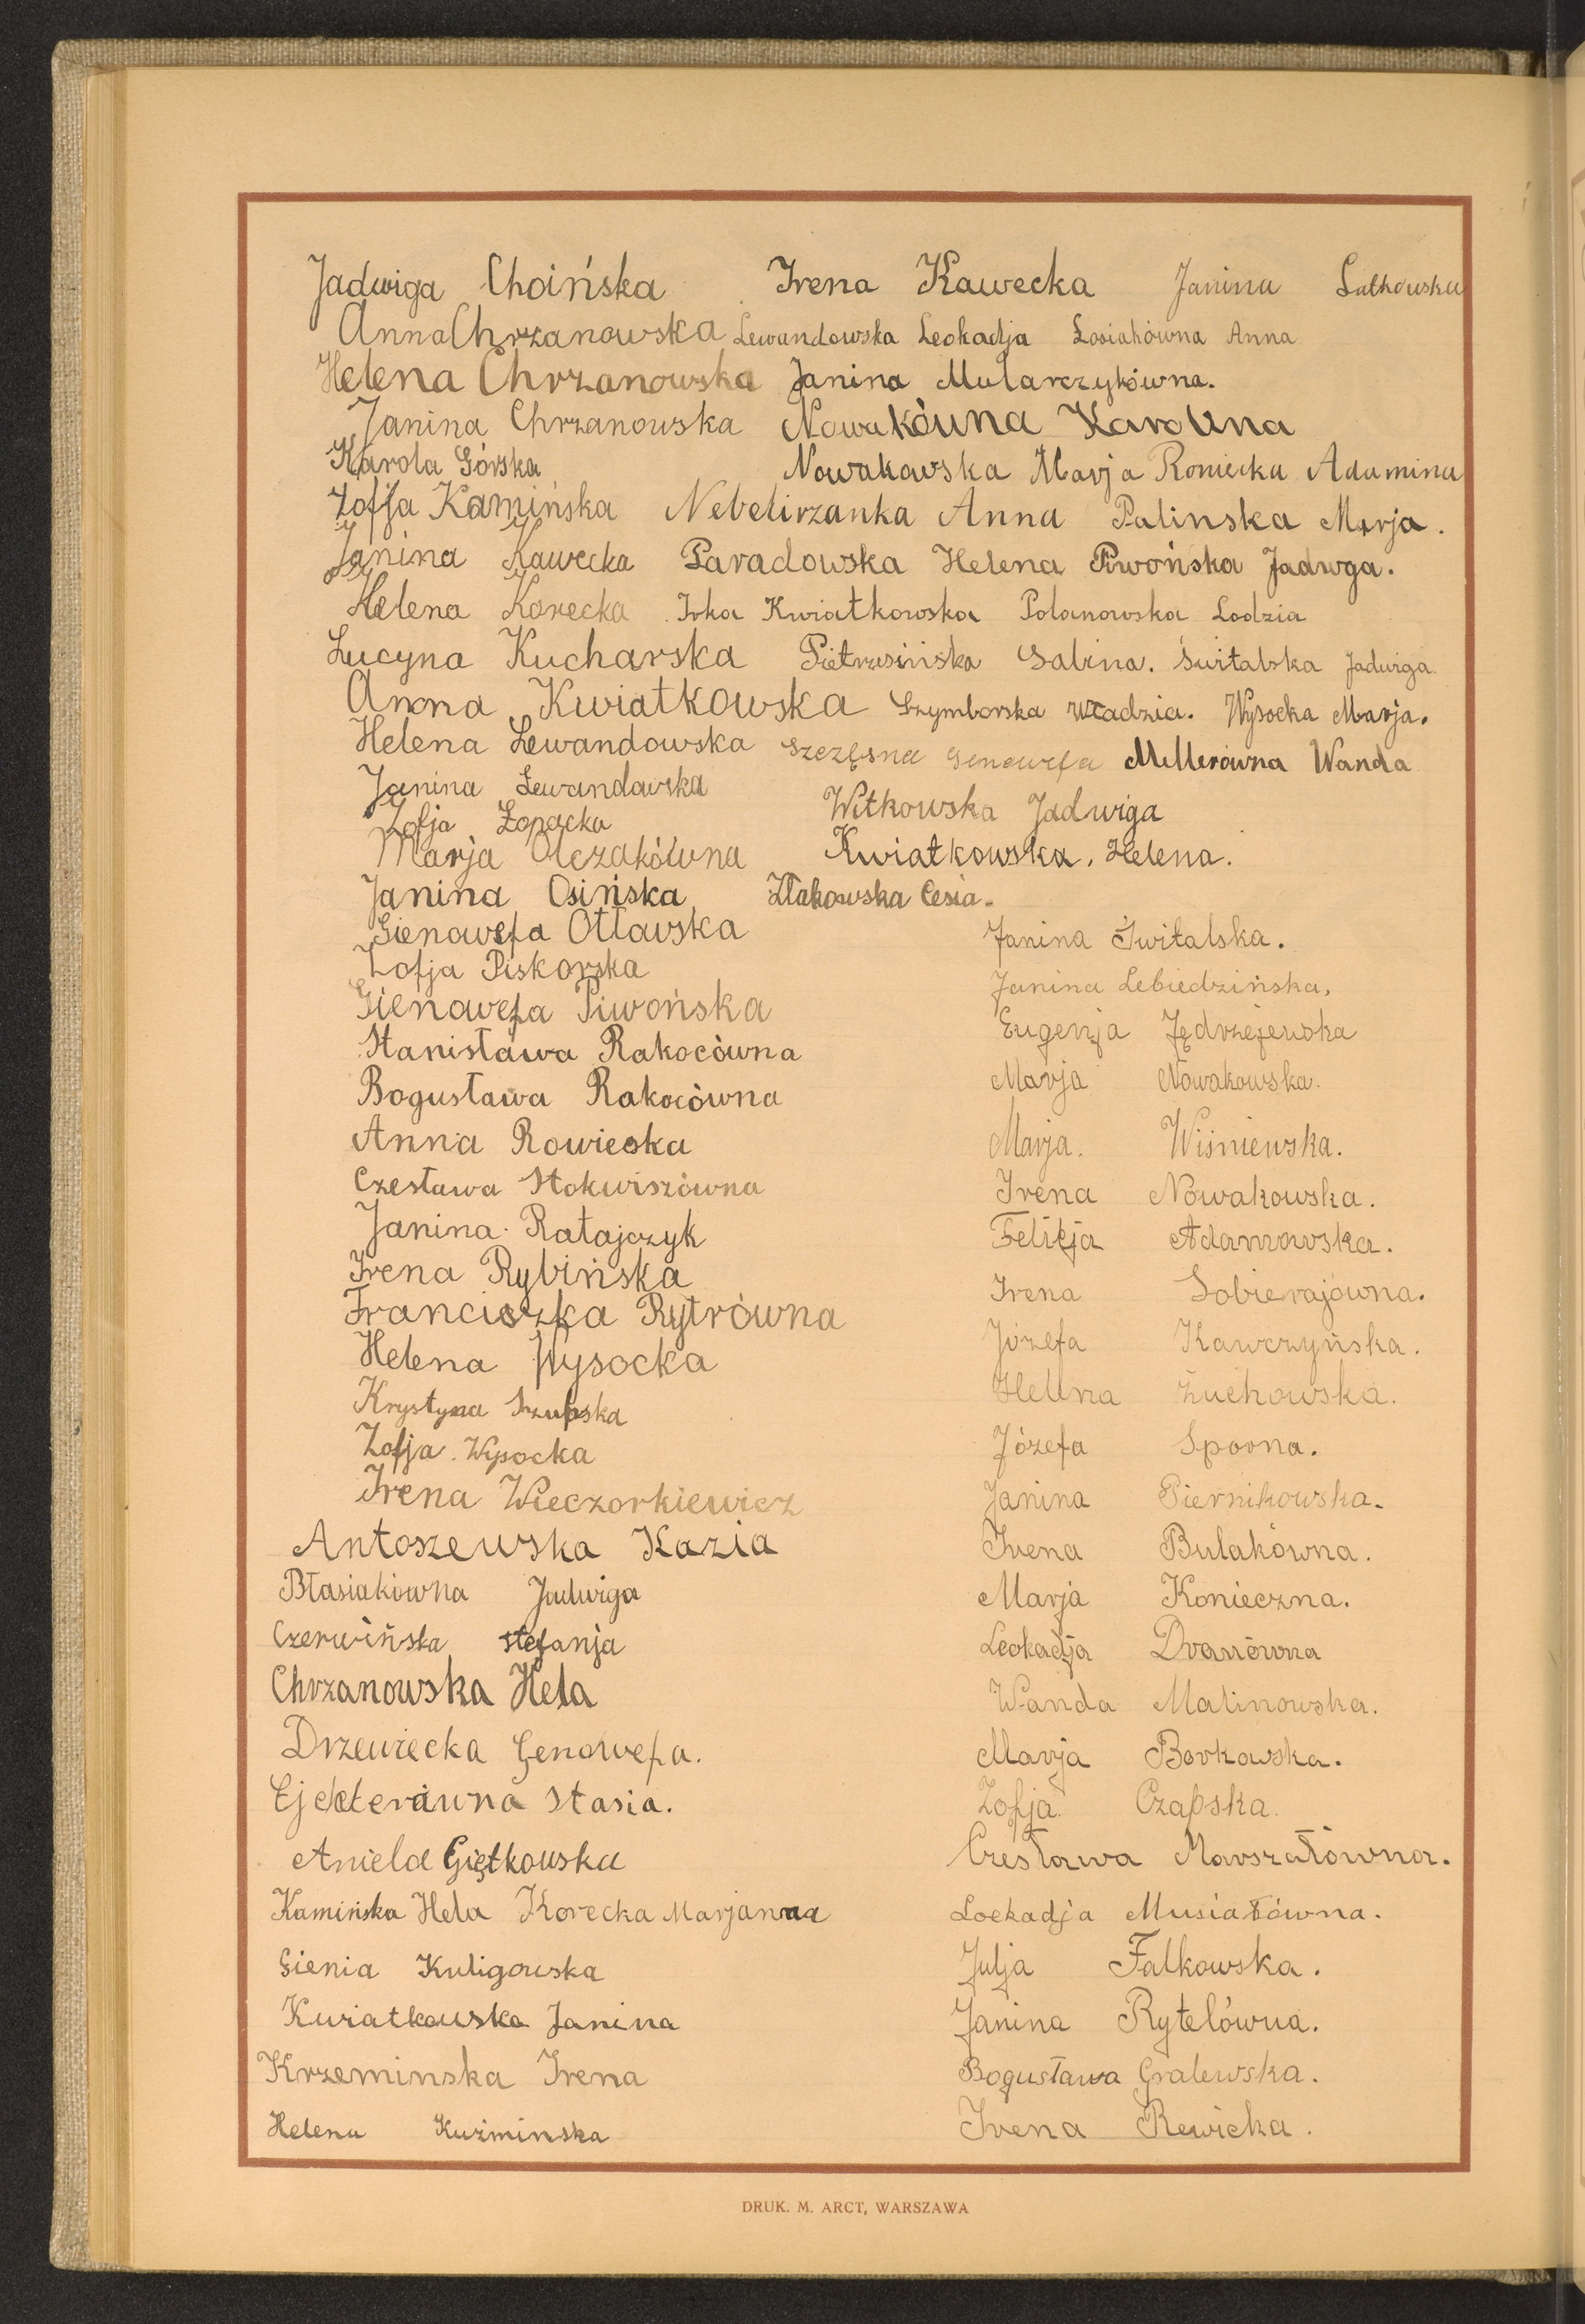 Jadwiga Choińska Irena Kawecka Janina Lutkowska
Anna Chrzanowska Lewandowska Leokadja Łosiakówna Anna
Helena Chrzanowska Janina Mularczykówna.
Janina Chrzanowska Nowakówna Karolina
Karola Górska Nowakowska Marja Roniecka Adamina
Zofja Kamińska Nebelirzanka Anna Palinska Marja.
Janina Kawecka Paradowska Helena Piwońska Jadwga.
Helena Korecka Irka Kwiatkowska Polanowska Lodzia
Lucyna Kucharska Pietrusińska Sabina. Świtalska Jadwiga.
Anna Kwiatkowska Szymborska Władzia. Wysocka Marja.
Helena Lewandowska Szczęsna Genowefa Mellerówna Wanda
Janina Lewandowska Witkowska Jadwiga
Zofja Łopacka
Marja Olczakówna Kwiatkowska, Helena.
Janina Osińska Złakowska Cesia.
Gienowefa Ottawska Janina Świtalska.
Zofja Piskorska Janina Lebiedzińska,
Gienowefa Piwońska Eugenja Jędrzejewska
Stanisława Rakocówna
Bogusława Rakocówna Marja Nowakowska.
Anna Rowiecka Marja. Wiśniewska.
Czesława Stokwiszówna Irena Nowakowska.
Janina Ratajczyk Felicja Adamowska.
Irena Rybińska Irena Sobierajówna.
Franciszka Rytrówna Józefa Kawczyńska.
Helena Wysocka
Krystyna Szubska Helena Żuchowska.
Zofja Wysocka Józefa Sporna.
Irena Wieczorkiewicz Janina Piernikowska.
Antoszewska Kazia Irena Bulakówna.
Błasiakówna Jadwiga Marja Konieczna.
Czerwińska Stefanja Leokadja
Chrzanowska Hela Wanda Malinowska.
Drzewiecka Genowefa. Marja Borkowska.
Ejchterówna Stasia. Zofja. Czapska.
Aniela Giętkowska Czesława Marszałówna.
Kamińska Hela Korecka Marjanna Loekadja Musiałówna.
Gienia Kuligowska Julja Falkowska.
Kwiatkowska Janina Janina Rytelówna.
Krzeminska Irena Bogusława Gralewska.
Helena Kuźminska Irena Rewicka.
DRUK. M. ARCT, WARSZAWA